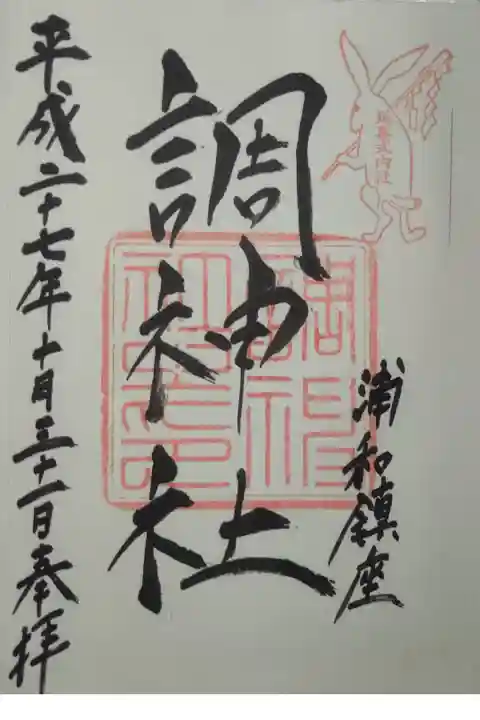 延喜式内社
浦和鎮座
調神社
平成二十七年十月三十一日奉拝